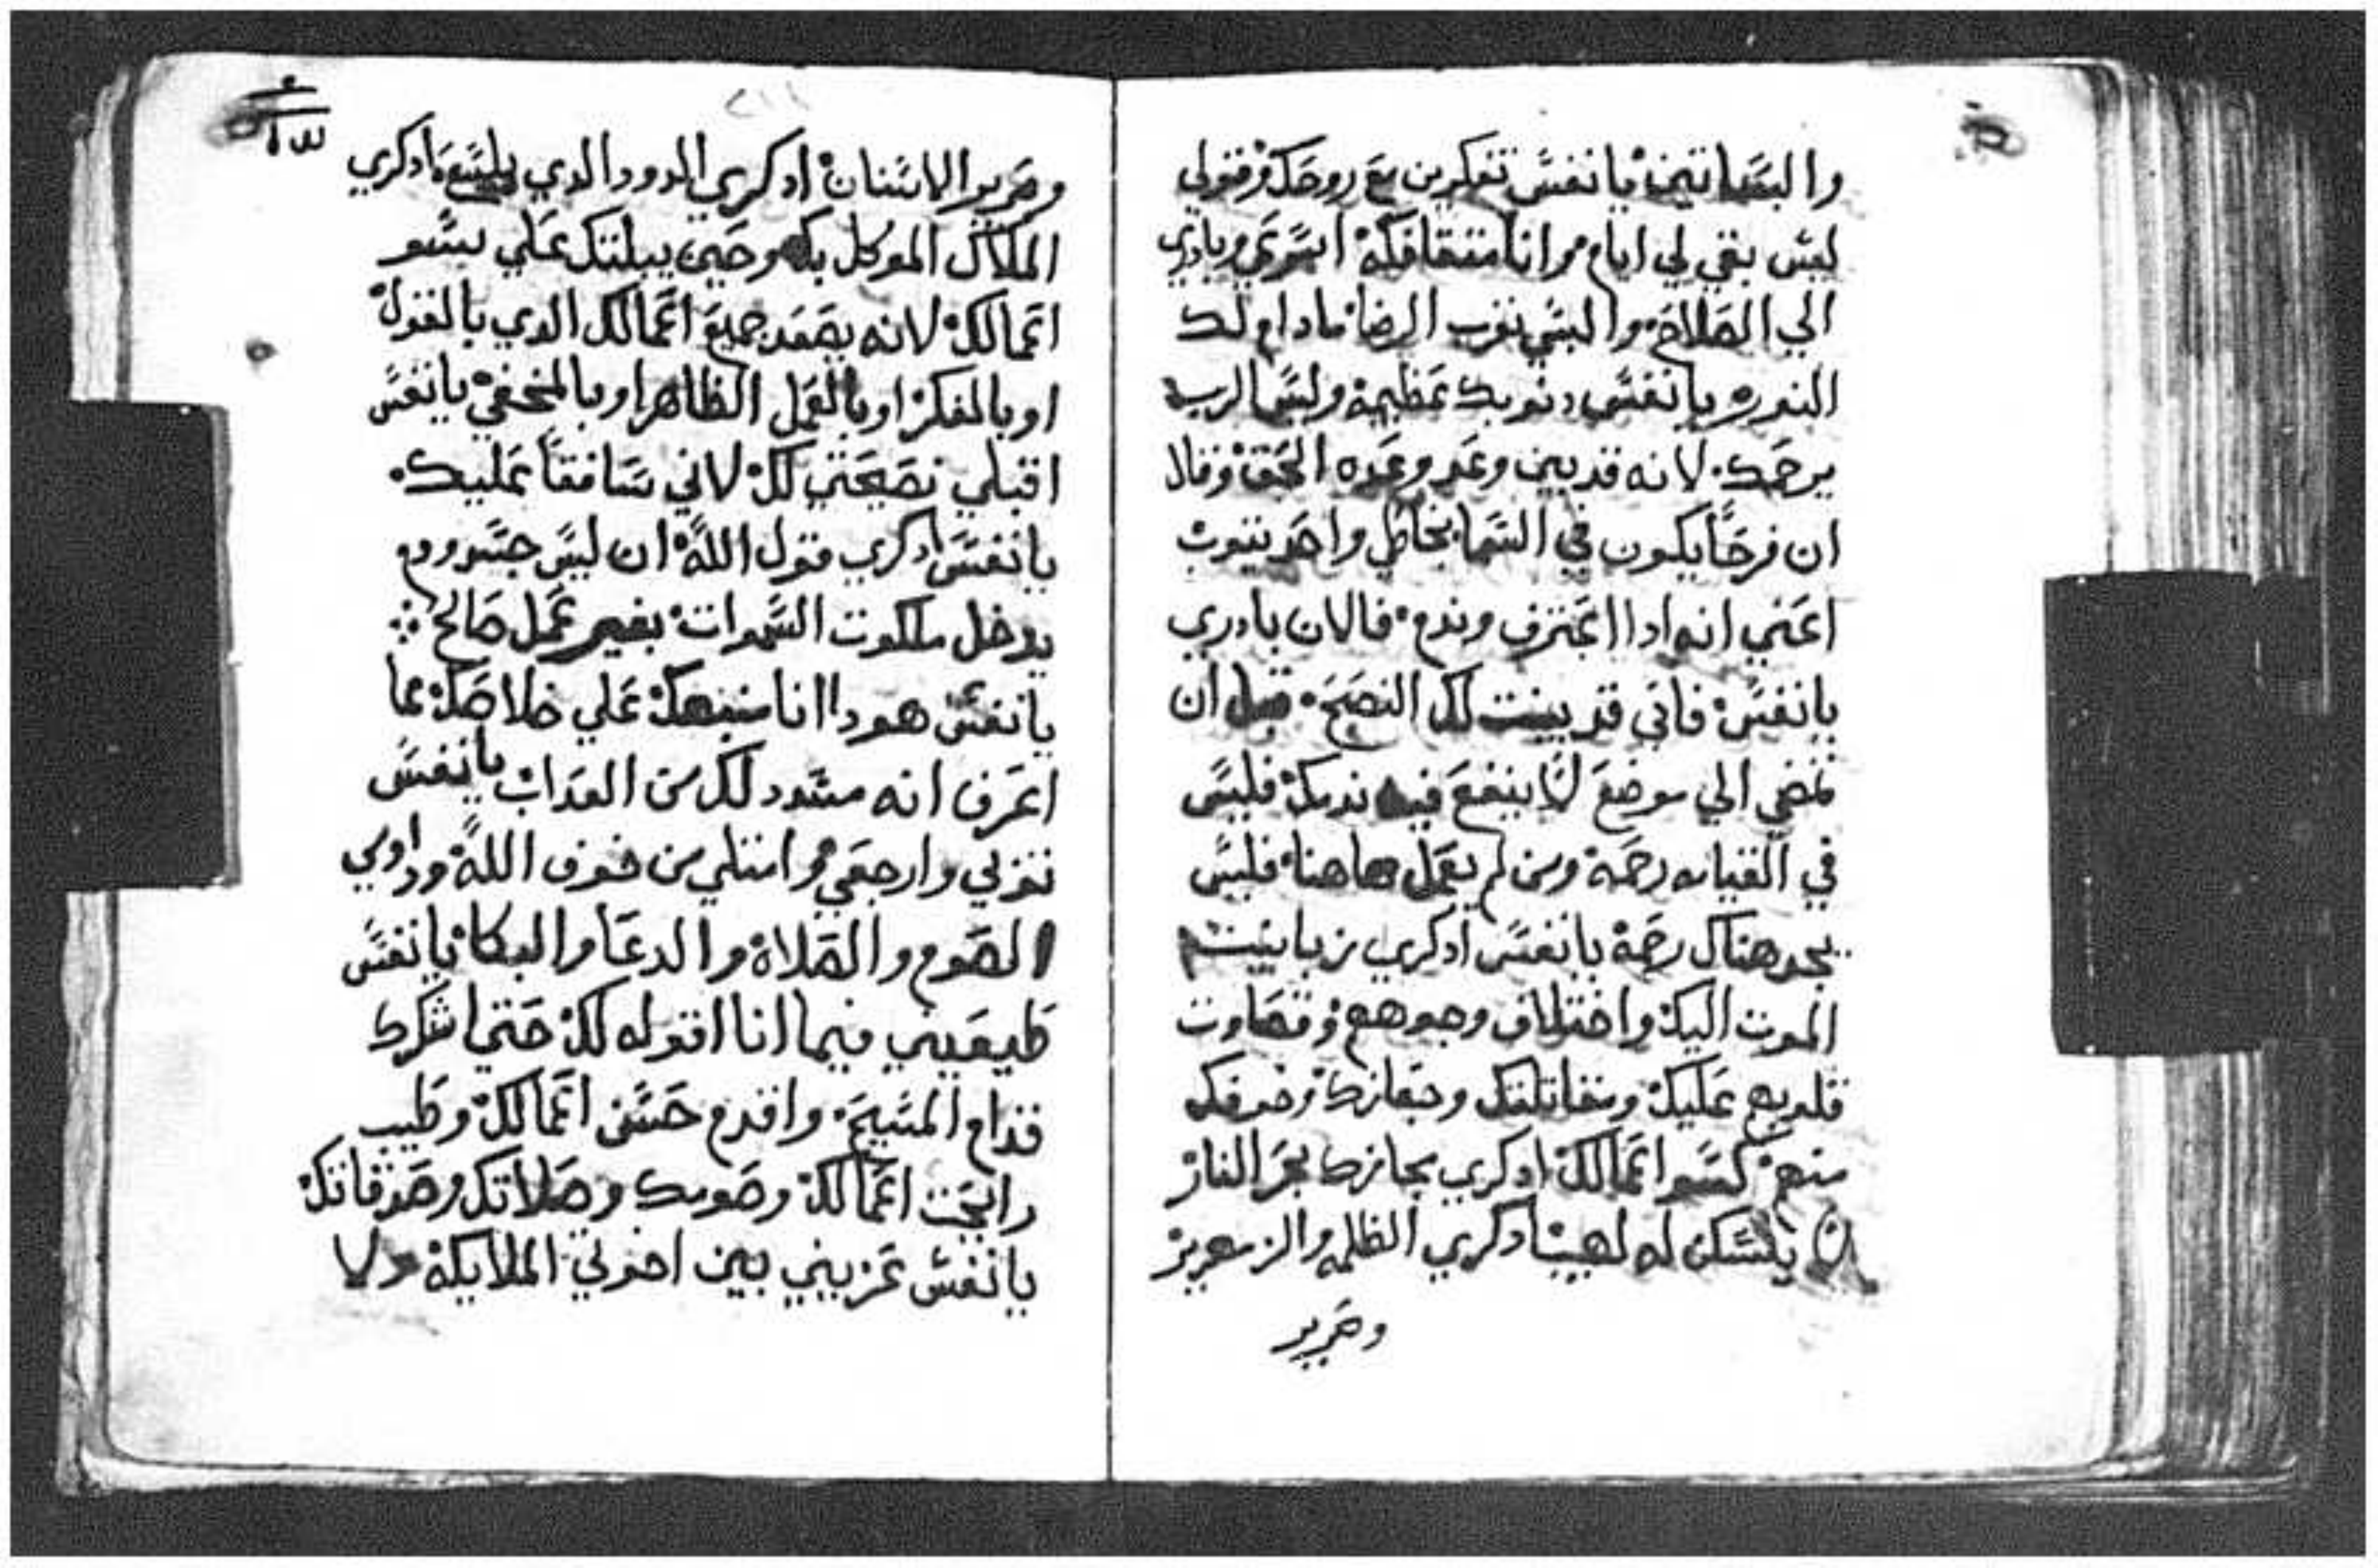 والبساتين يا نفس تفكرين مع روحك وتقولي
ليس بقي لي ايام مرانا متغافلة اسرعي وبادري
الي الصلاح والبسي ثوب الرضا ما دام لك
التوبه يا نفس دنوبك عظيمة وليس الرب
يرحمك لانه قد بين وعد وعده الحق وقال
ان فرحًا يكون في السما بخاطي واحد يتوب
اعني انه ادا اعترف وندم فالان بادري
يا نفس فاني قد بينت لك النصح قبل ان
تمضي الي موضع لا ينفع فيه ندمك فليس
في القيامه رحمة ومن لم يعمل هاهنا فليس
يجد هناك رحمة يا نفس ادكري زبانيت
الموت اليك واختلاف وجوههم وقصاوت
قلوبهم عليك ومخاتلتك وجهازك وخوفك
منهم كسو اعمالك ادكري مجازك بحر النار
ان يسكن له لهيب ادكري الظلمه والزمهرير
وصرير
وصرير الاسنان ادكري الدود الدي يلسع ادكري
الملاك الموكل بك وحين يبكتك علي بسو
اعمالك لانه يصعد جميع اعمالك الدي بالقول
او بالفكر او بالعمل الظاهر او بالمخفي يا نفس
اقبلي نصيحتي لك لاني شافقًا عليك
يا نفس ادكري قول الله ان ليس جسد ودم
يدخل ملكوت السموات بغير عمل صالح
يا نفس هودا انا منبهك علي خلاصك مما
اعرف انه مستعد لك من العداب يا نفس
توبي وارجعي وامتلي من خوف الله وداومي
الصوم والصلاة والدعا والبكا يا نفس
طيعيني فيما انا اقوله لك حتي اشكرك
قدام المسيح واقدم حسن اعمالك وطيب
رايحت اعمالك وصومك وصلاتك وصدقاتك
يا نفس عزيني بين اخوتي الملايكة ولا